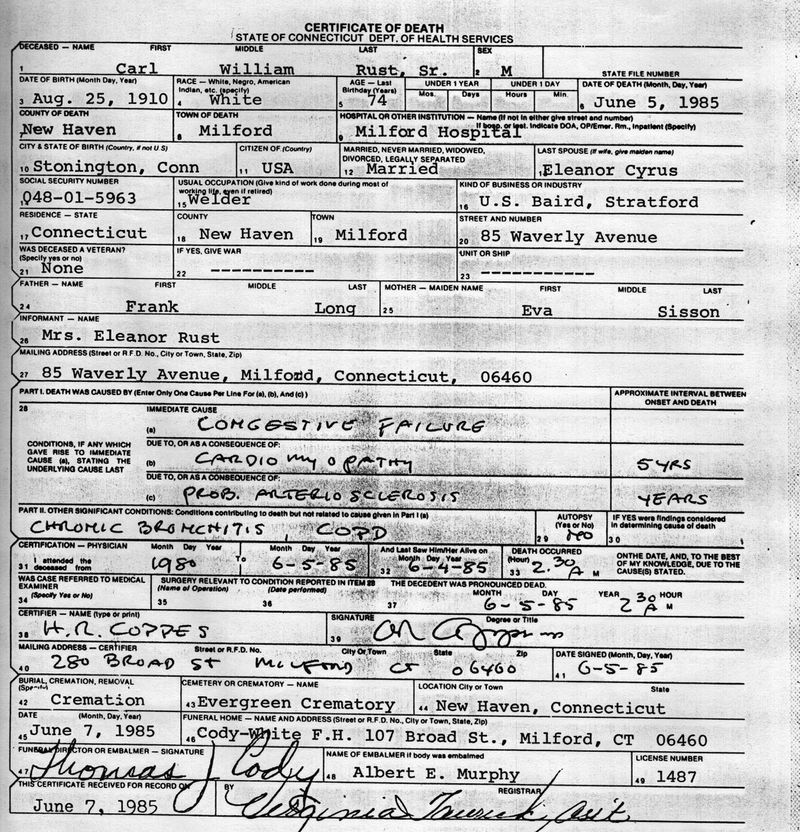 CERTIFICATE OF DEATH
STATE OF CONNECTICUT DEPT. OF HEALTH SERVICES
DECEASED — NAME FIRST MIDDLE LAST SEX
1 Carl William Rust, Sr. 2 M STATE FILE NUMBER
DATE OF BIRTH (Month, Day, Year) RACE — White, Negro, American Indian, etc. (specify) AGE — Last Birthday (Years) UNDER 1 YEAR Mos. Days UNDER 1 DAY Hours Min. DATE OF DEATH (Month, Day, Year)
3 Aug. 25, 1910 4 White 5 74 6 June 5, 1985
COUNTY OF DEATH TOWN OF DEATH HOSPITAL OR OTHER INSTITUTION — Name (If not in either give street and number)
If hosp. or inst. Indicate DOA, OP/Emer. Rm., Inpatient (Specify)
7 New Haven 8 Milford 9 Milford Hospital
CITY & STATE OF BIRTH (Country, if not U S) CITIZEN OF (Country) MARRIED, NEVER MARRIED, WIDOWED, DIVORCED, LEGALLY SEPARATED LAST SPOUSE (If wife, give maiden name)
10 Stonington, Conn 11 USA 12 Married Eleanor Cyrus
SOCIAL SECURITY NUMBER USUAL OCCUPATION (Give kind of work done during most of working life, even if retired) KIND OF BUSINESS OR INDUSTRY
048-01-5963 15 Welder 16 U.S. Baird, Stratford
RESIDENCE — STATE COUNTY TOWN STREET AND NUMBER
17 Connecticut 18 New Haven 19 Milford 20 85 Waverly Avenue
WAS DECEASED A VETERAN? (Specify yes or no) IF YES, GIVE WAR UNIT OR SHIP
21 None 22 ----------- 23 -----------
FATHER — NAME FIRST MIDDLE LAST MOTHER — MAIDEN NAME FIRST MIDDLE LAST
24 Frank Long 25 Eva Sisson
INFORMANT — NAME
26 Mrs. Eleanor Rust
MAILING ADDRESS (Street or R.F.D. No., City or Town, State, Zip)
27 85 Waverly Avenue, Milford, Connecticut, 06460
PART I. DEATH WAS CAUSED BY (Enter Only One Cause Per Line For (a), (b), And (c)) APPROXIMATE INTERVAL BETWEEN ONSET AND DEATH
28 IMMEDIATE CAUSE
(a) CONGESTIVE FAILURE
CONDITIONS, IF ANY WHICH GAVE RISE TO IMMEDIATE CAUSE (a), STATING THE UNDERLYING CAUSE LAST
DUE TO, OR AS A CONSEQUENCE OF:
(b) CARDIOMYOPATHY 5 YRS
DUE TO, OR AS A CONSEQUENCE OF:
(c) PROB. ARTERIOSCLEROSIS YEARS
PART II. OTHER SIGNIFICANT CONDITIONS: Conditions contributing to death but not related to cause given in Part I (a) AUTOPSY (Yes or No) IF YES were findings considered in determining cause of death
CHRONIC BRONCHITIS, COPD 29 NO 30
CERTIFICATION — PHYSICIAN Month Day Year Month Day Year And Last Saw Him/Her Alive on Month Day Year DEATH OCCURRED (Hour) ON THE DATE, AND, TO THE BEST OF MY KNOWLEDGE, DUE TO THE CAUSE(S) STATED.
31 I attended the deceased from 1980 To 6-5-85 32 6-4-85 33 2.30 A M
WAS CASE REFERRED TO MEDICAL EXAMINER (Specify Yes or No) SURGERY RELEVANT TO CONDITION REPORTED IN ITEM 28 (Name of Operation) (Date performed) THE DECEDENT WAS PRONOUNCED DEAD. MONTH DAY YEAR HOUR
34 35 36 37 6-5-85 2 30 A M
CERTIFIER — NAME (type or print) SIGNATURE Degree or Title
38 H.R. COPPES 39
MAILING ADDRESS — CERTIFIER Street or R.F.D. No. City Or Town State Zip DATE SIGNED (Month, Day, Year)
40 280 BROAD ST MILFORD CT 06460 41 6-5-85
BURIAL, CREMATION, REMOVAL (Specify) CEMETERY OR CREMATORY — NAME LOCATION City or Town State
42 Cremation 43 Evergreen Crematory 44 New Haven, Connecticut
DATE (Month, Day, Year) FUNERAL HOME — NAME AND ADDRESS (Street or R.F.D. No., City or Town, State, Zip)
45 June 7, 1985 46 Cody-White F.H. 107 Broad St., Milford, CT 06460
FUNERAL DIRECTOR OR EMBALMER — SIGNATURE NAME OF EMBALMER If body was embalmed LICENSE NUMBER
47 Thomas J Cody 48 Albert E. Murphy 49 1487
THIS CERTIFICATE RECEIVED FOR RECORD ON BY REGISTRAR
June 7, 1985 Virginia Asst.